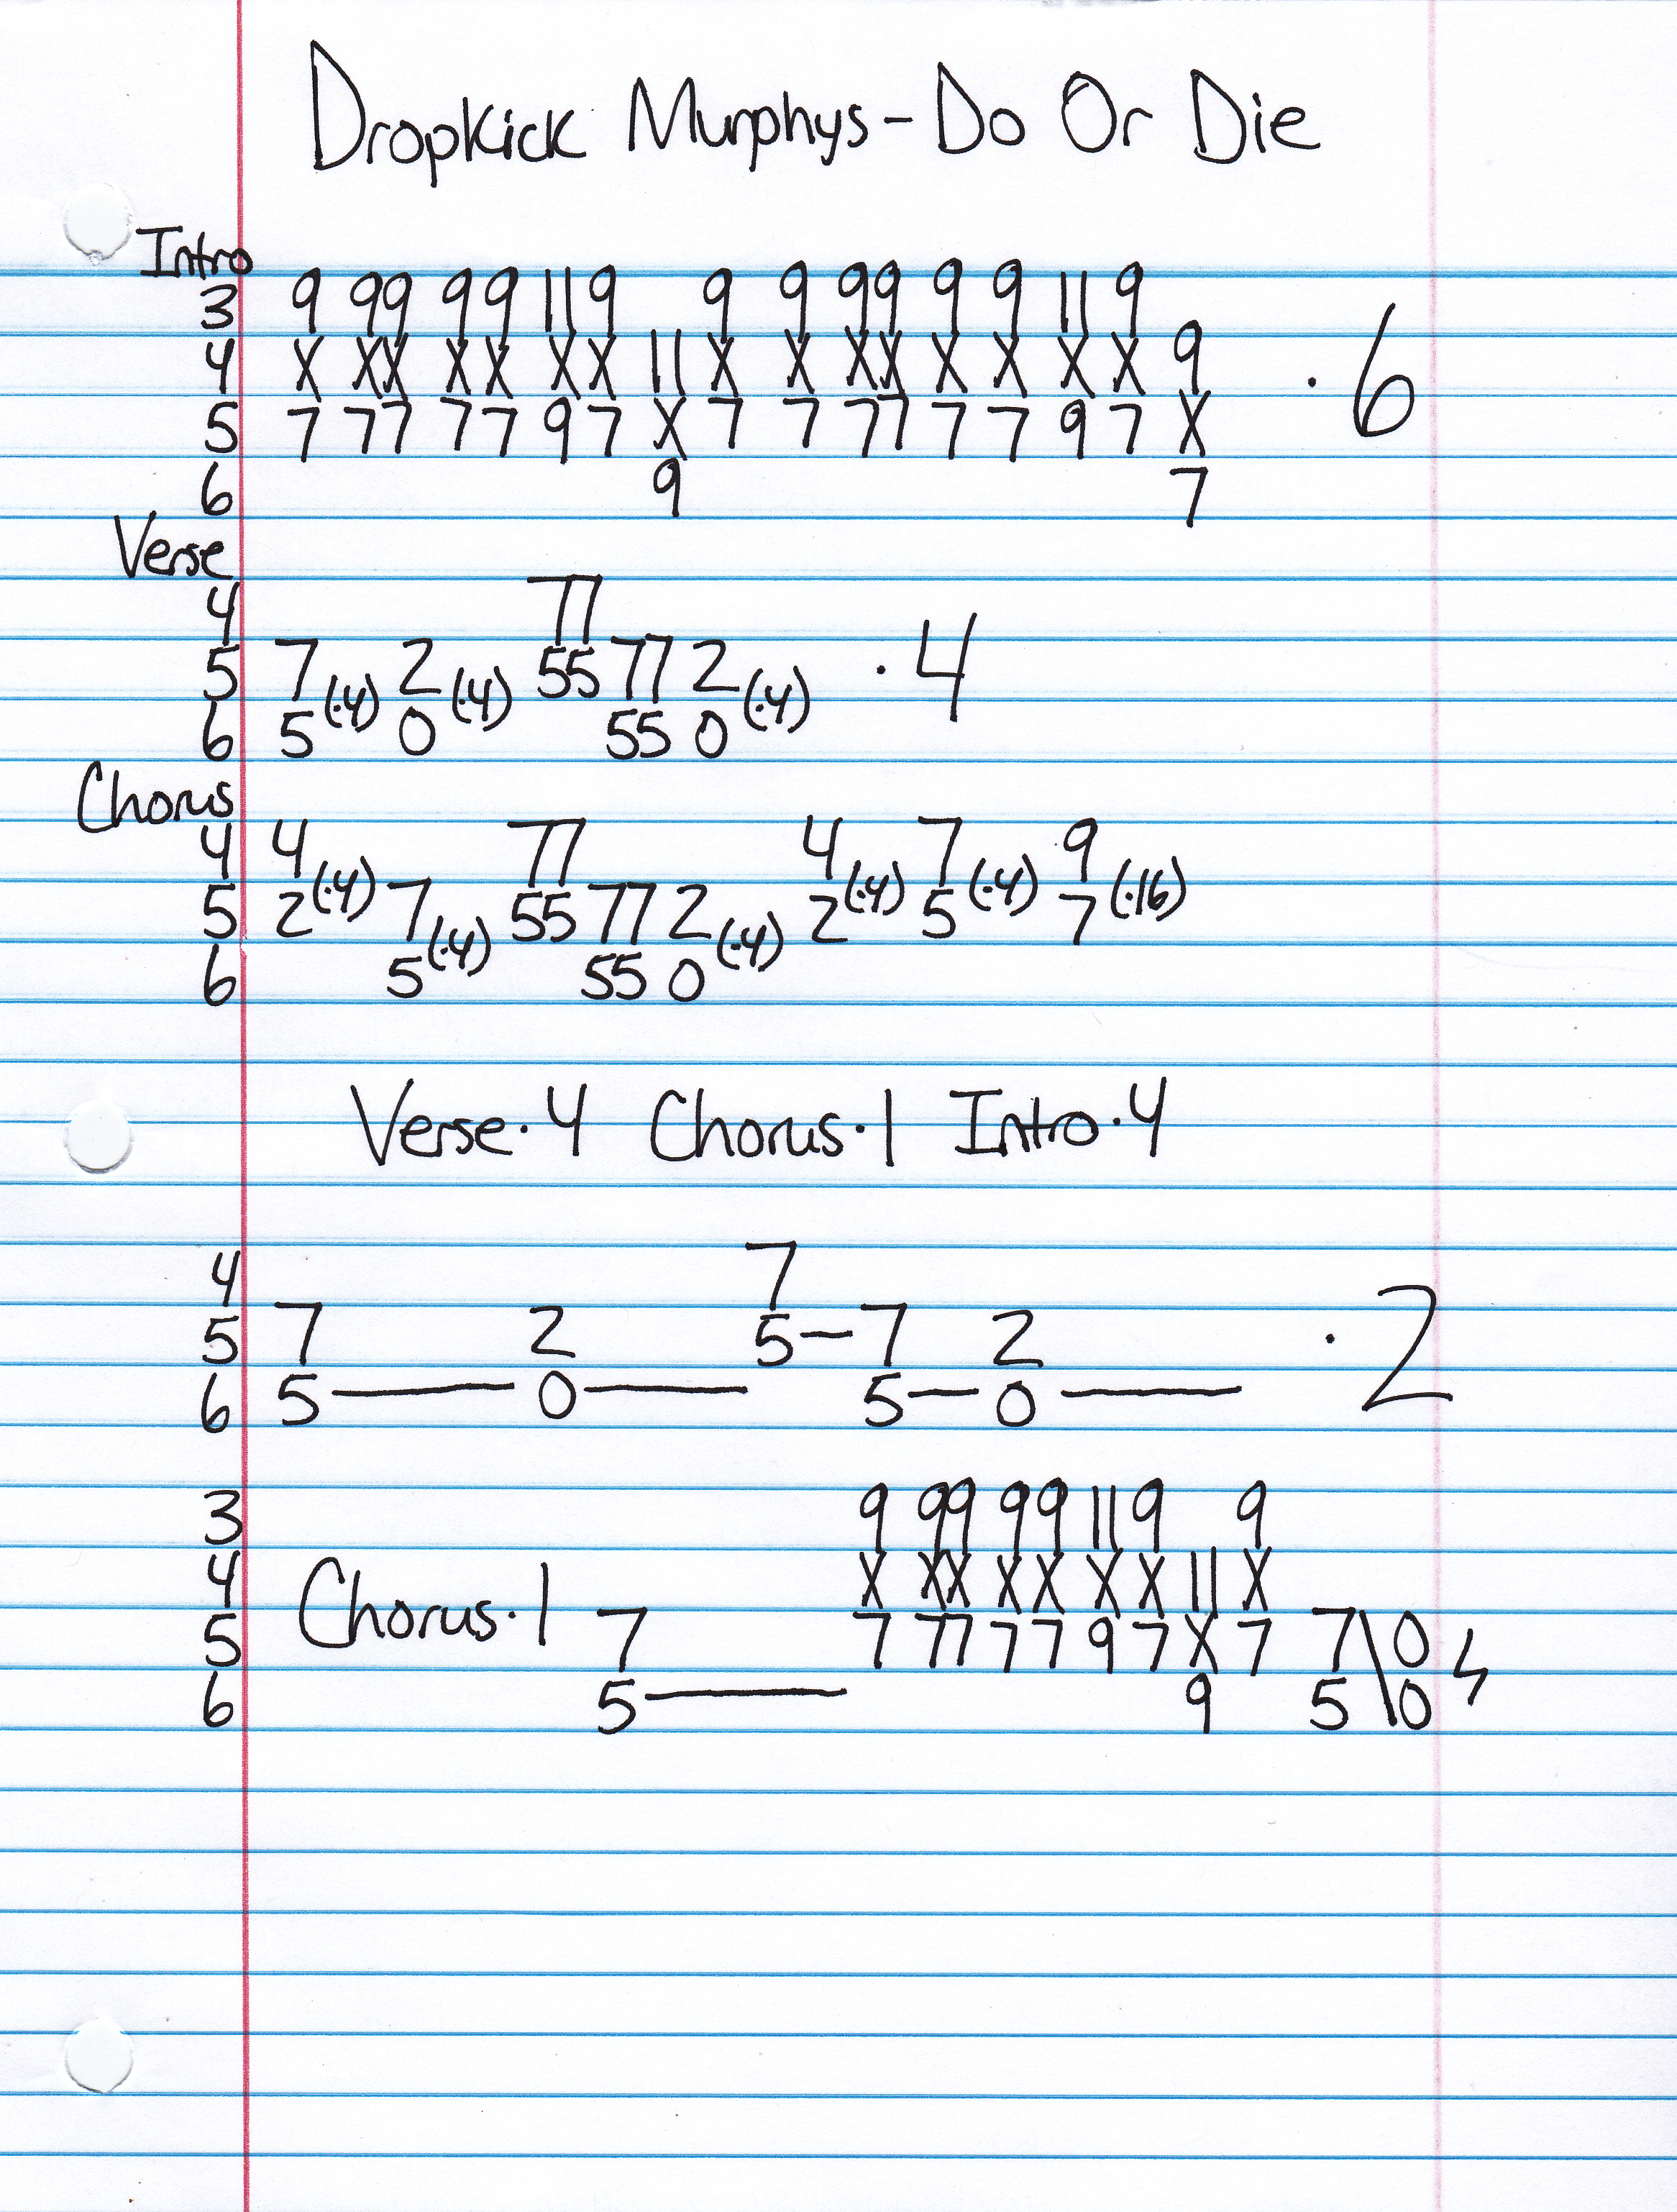 Dropkick Murphys - Do Or Die
Intro
3 9 99 99 11 9 9 9 99 9 9 11 9
4 X XX XX X X 11 X X XX X X X X 9 · 6
5 7 77 77 9 7 X 7 7 77 7 7 9 7 X
6 9 7
Verse
4 77
5 7 (·4) 2 (·4) 55 77 2 (·4) · 4
6 5 0 55 0
Chorus
4 4 77 4 7 9
5 2 (·4) 7 55 77 2 2 (·4) 5 (·4) 7 (·16)
6 5 (·4) 55 0 (·4)
Verse·4 Chorus·1 Intro·4
4 7
5 7 2 5 — 7 2 · 2
6 5 — 0 — 5 — 0 —
3 9 99 99 11 9 9
4 X XX XX X X 11 X
5 Chorus·1 7 7 77 77 9 7 X 7 7 \ 0
6 5 — 9 5 \ 0